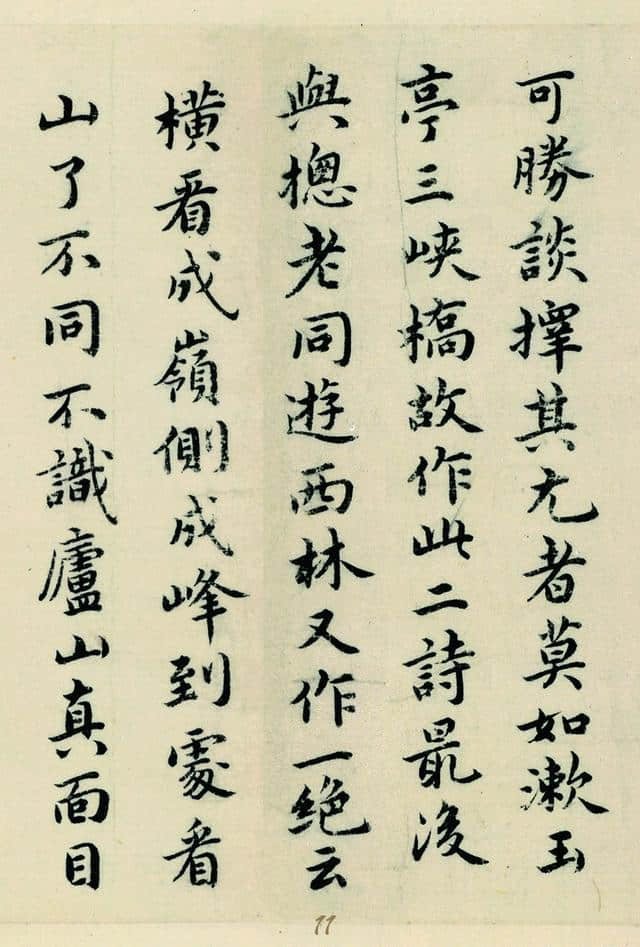 可勝談擇其尤者莫如漱玉
亭三峽橋故作此二詩最後
與摠老同遊西林又作一絕云
橫看成嶺側成峰到處看
山了不同不識廬山真面目
11